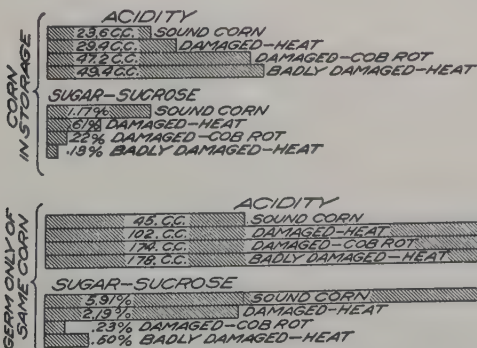 CORN
IN STORAGE
ACIDITY
23.6 C.C. SOUND CORN
29.4 C.C. DAMAGED-HEAT
47.2 C.C. DAMAGED-COB ROT
49.4 C.C. BADLY DAMAGED-HEAT
SUGAR-SUCROSE
1.17% SOUND CORN
.61% DAMAGED-HEAT
.22% DAMAGED-COB ROT
.18% BADLY DAMAGED-HEAT
GERM ONLY OF
SAME CORN
ACIDITY
45. C.C. SOUND CORN
102. C.C. DAMAGED-HEAT
174. C.C. DAMAGED-COB ROT
178. C.C. BADLY DAMAGED-HEAT
SUGAR-SUCROSE
5.91% SOUND CORN
2.19% DAMAGED-HEAT
.23% DAMAGED-COB ROT
.50% BADLY DAMAGED-HEAT